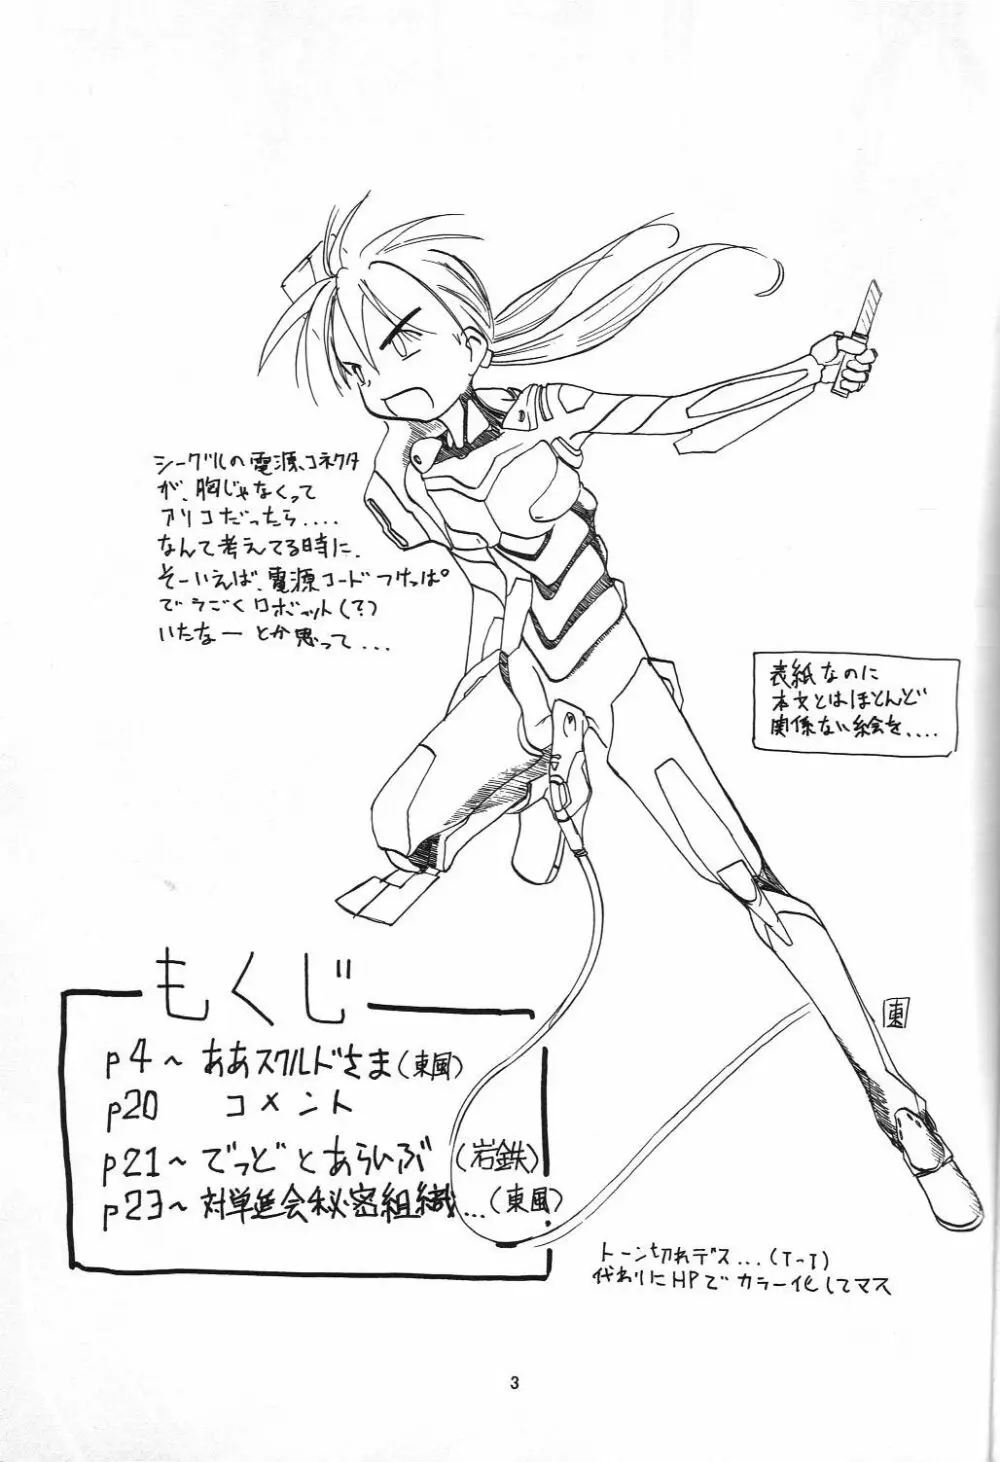 シーグルの電源、コネクタ
が、胸じゃなくって
アソコだったら....
なんて考えてる時に、
そーいえば、電源コードつけっぱ
でうごくロボット(?)
いたなー とか思って...
表紙なのに
本文とはほとんど
関係ない絵を、....
東
もくじ
p4～ ああスクルドさま(東風)
p20 コメント
p21～ でっどとあらいぶ (岩鉄)
p23～ 対単進会秘密組織...(東風)
トーン切れデス...(T-T)
代わりにHPでカラー化してマス
3